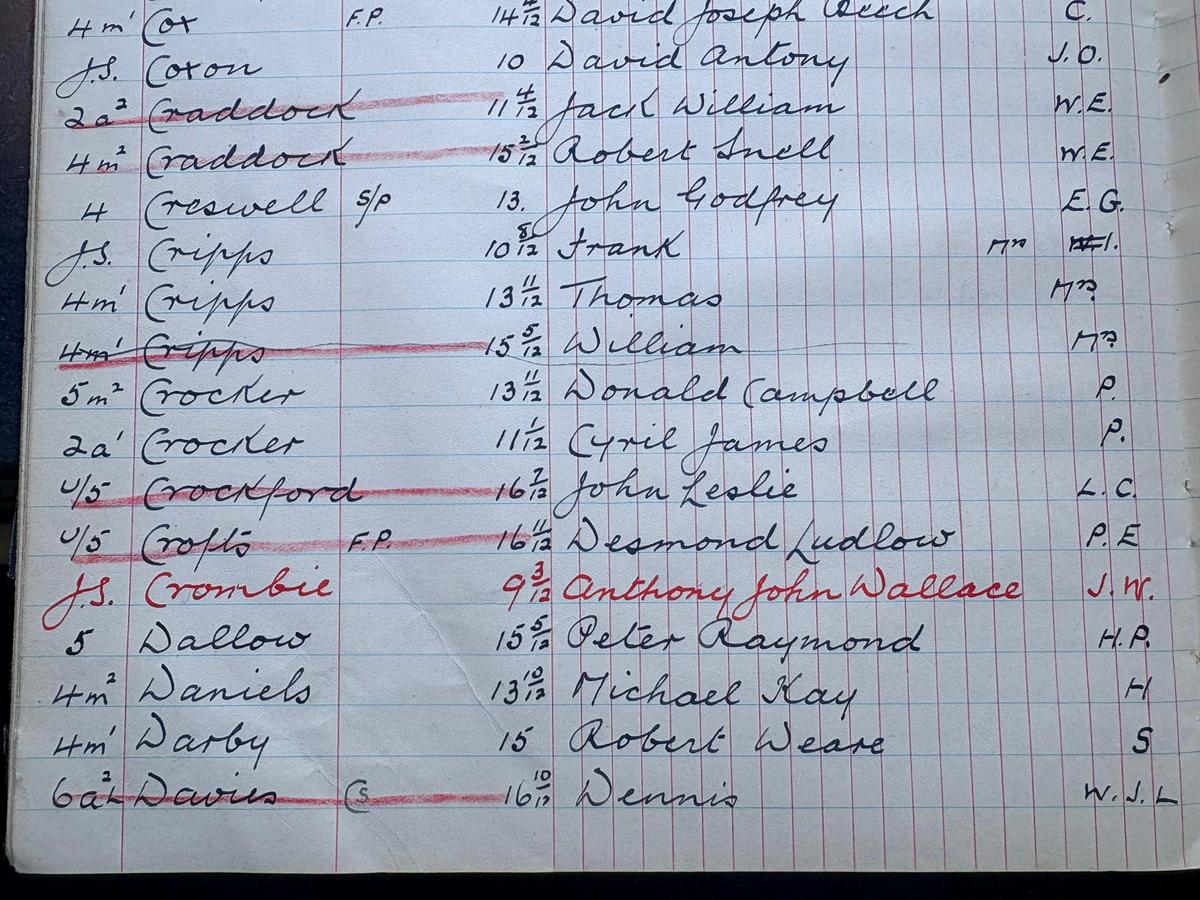 4m' Cox F.P. 14 4/12 David Joseph Beech C.
J.S. Coxon 10 David Antony J.O.
2a² Craddock 11 4/12 Jack William W.E.
4m² Craddock 15 2/12 Robert Snell W.E.
4 Creswell S/P 13. John Godfrey E.G.
J.S. Cripps 10 8/12 Frank
4m' Cripps 13 11/12 Thomas
4m' Cripps 15 5/12 William
5m² Crocker 13 11/12 Donald Campbell P.
2a' Crocker 11 1/12 Cyril James P.
U/5 Crockford 16 7/12 John Leslie L.C.
U/5 Crofts F.P. 16 11/12 Desmond Ludlow P.E
J.S. Crombie 9 3/12 Anthony John Wallace J.W.
5 Dallow 15 5/12 Peter Raymond H.P.
4m² Daniels 13 10/12 Michael Kay H
4m' Darby 15 Robert Weare S
6a²L Davies S 16 10/12 Dennis W.J.L